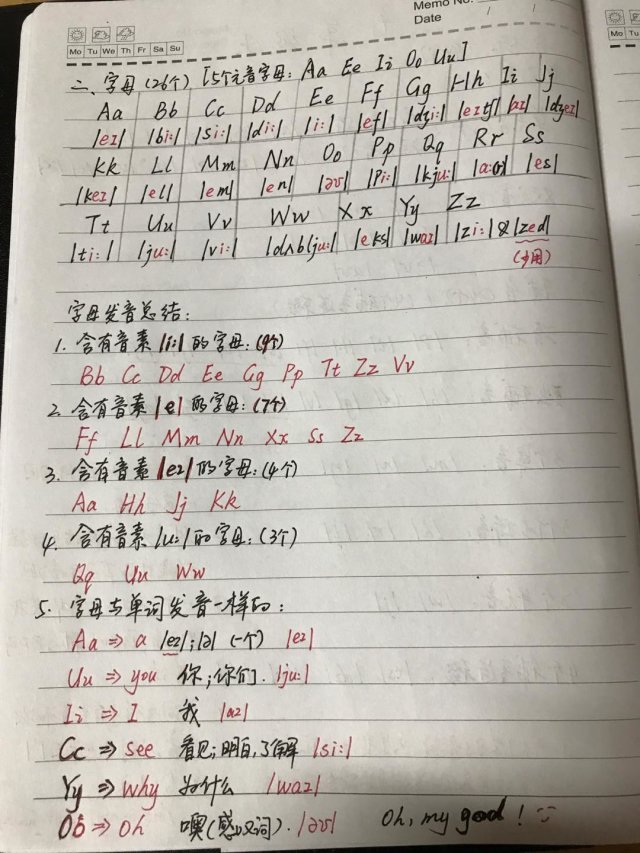 Memo No.
Date / /
Mo Tu We Th Fr Sa Su
Mo Tu
二、字母(26个) [5个元音字母: Aa Ee Ii Oo Uu]
Aa Bb Cc Dd Ee Ff Gg Hh Ii Jj
|eɪ| |bi:| |si:| |di:| |i:| |ef| |dʒi:| |eɪtʃ| |aɪ| |dʒeɪ|
Kk Ll Mm Nn Oo Pp Qq Rr Ss
|keɪ| |el| |em| |en| |əʊ| |pi:| |kju:| |a:(r)| |es|
Tt Uu Vv Ww Xx Yy Zz
|ti:| |ju:| |vi:| |dʌblju:| |eks| |waɪ| |zi:| & |zed|
字母发音总结:
1. 含有音素 |i:| 的字母: (9个)
Bb Cc Dd Ee Gg Pp Tt Zz Vv
2. 含有音素 |e| 的字母: (7个)
Ff Ll Mm Nn Xx Ss Zz
3. 含有音素 |eɪ| 的字母: (4个)
Aa Hh Jj Kk
4. 含有音素 |u:| 的字母: (3个)
Qq Uu Ww
5. 字母与单词发音一样的:
Aa => a |eɪ|; |ə| (一个) |eɪ|
Uu => you 你; 你们. |ju:|
Ii => I 我 |aɪ|
Cc => see 看见; 明白, 了解 |si:|
Yy => why 为什么 |waɪ|
Oo => oh 噢(感叹词). |əʊ| Oh, my god!